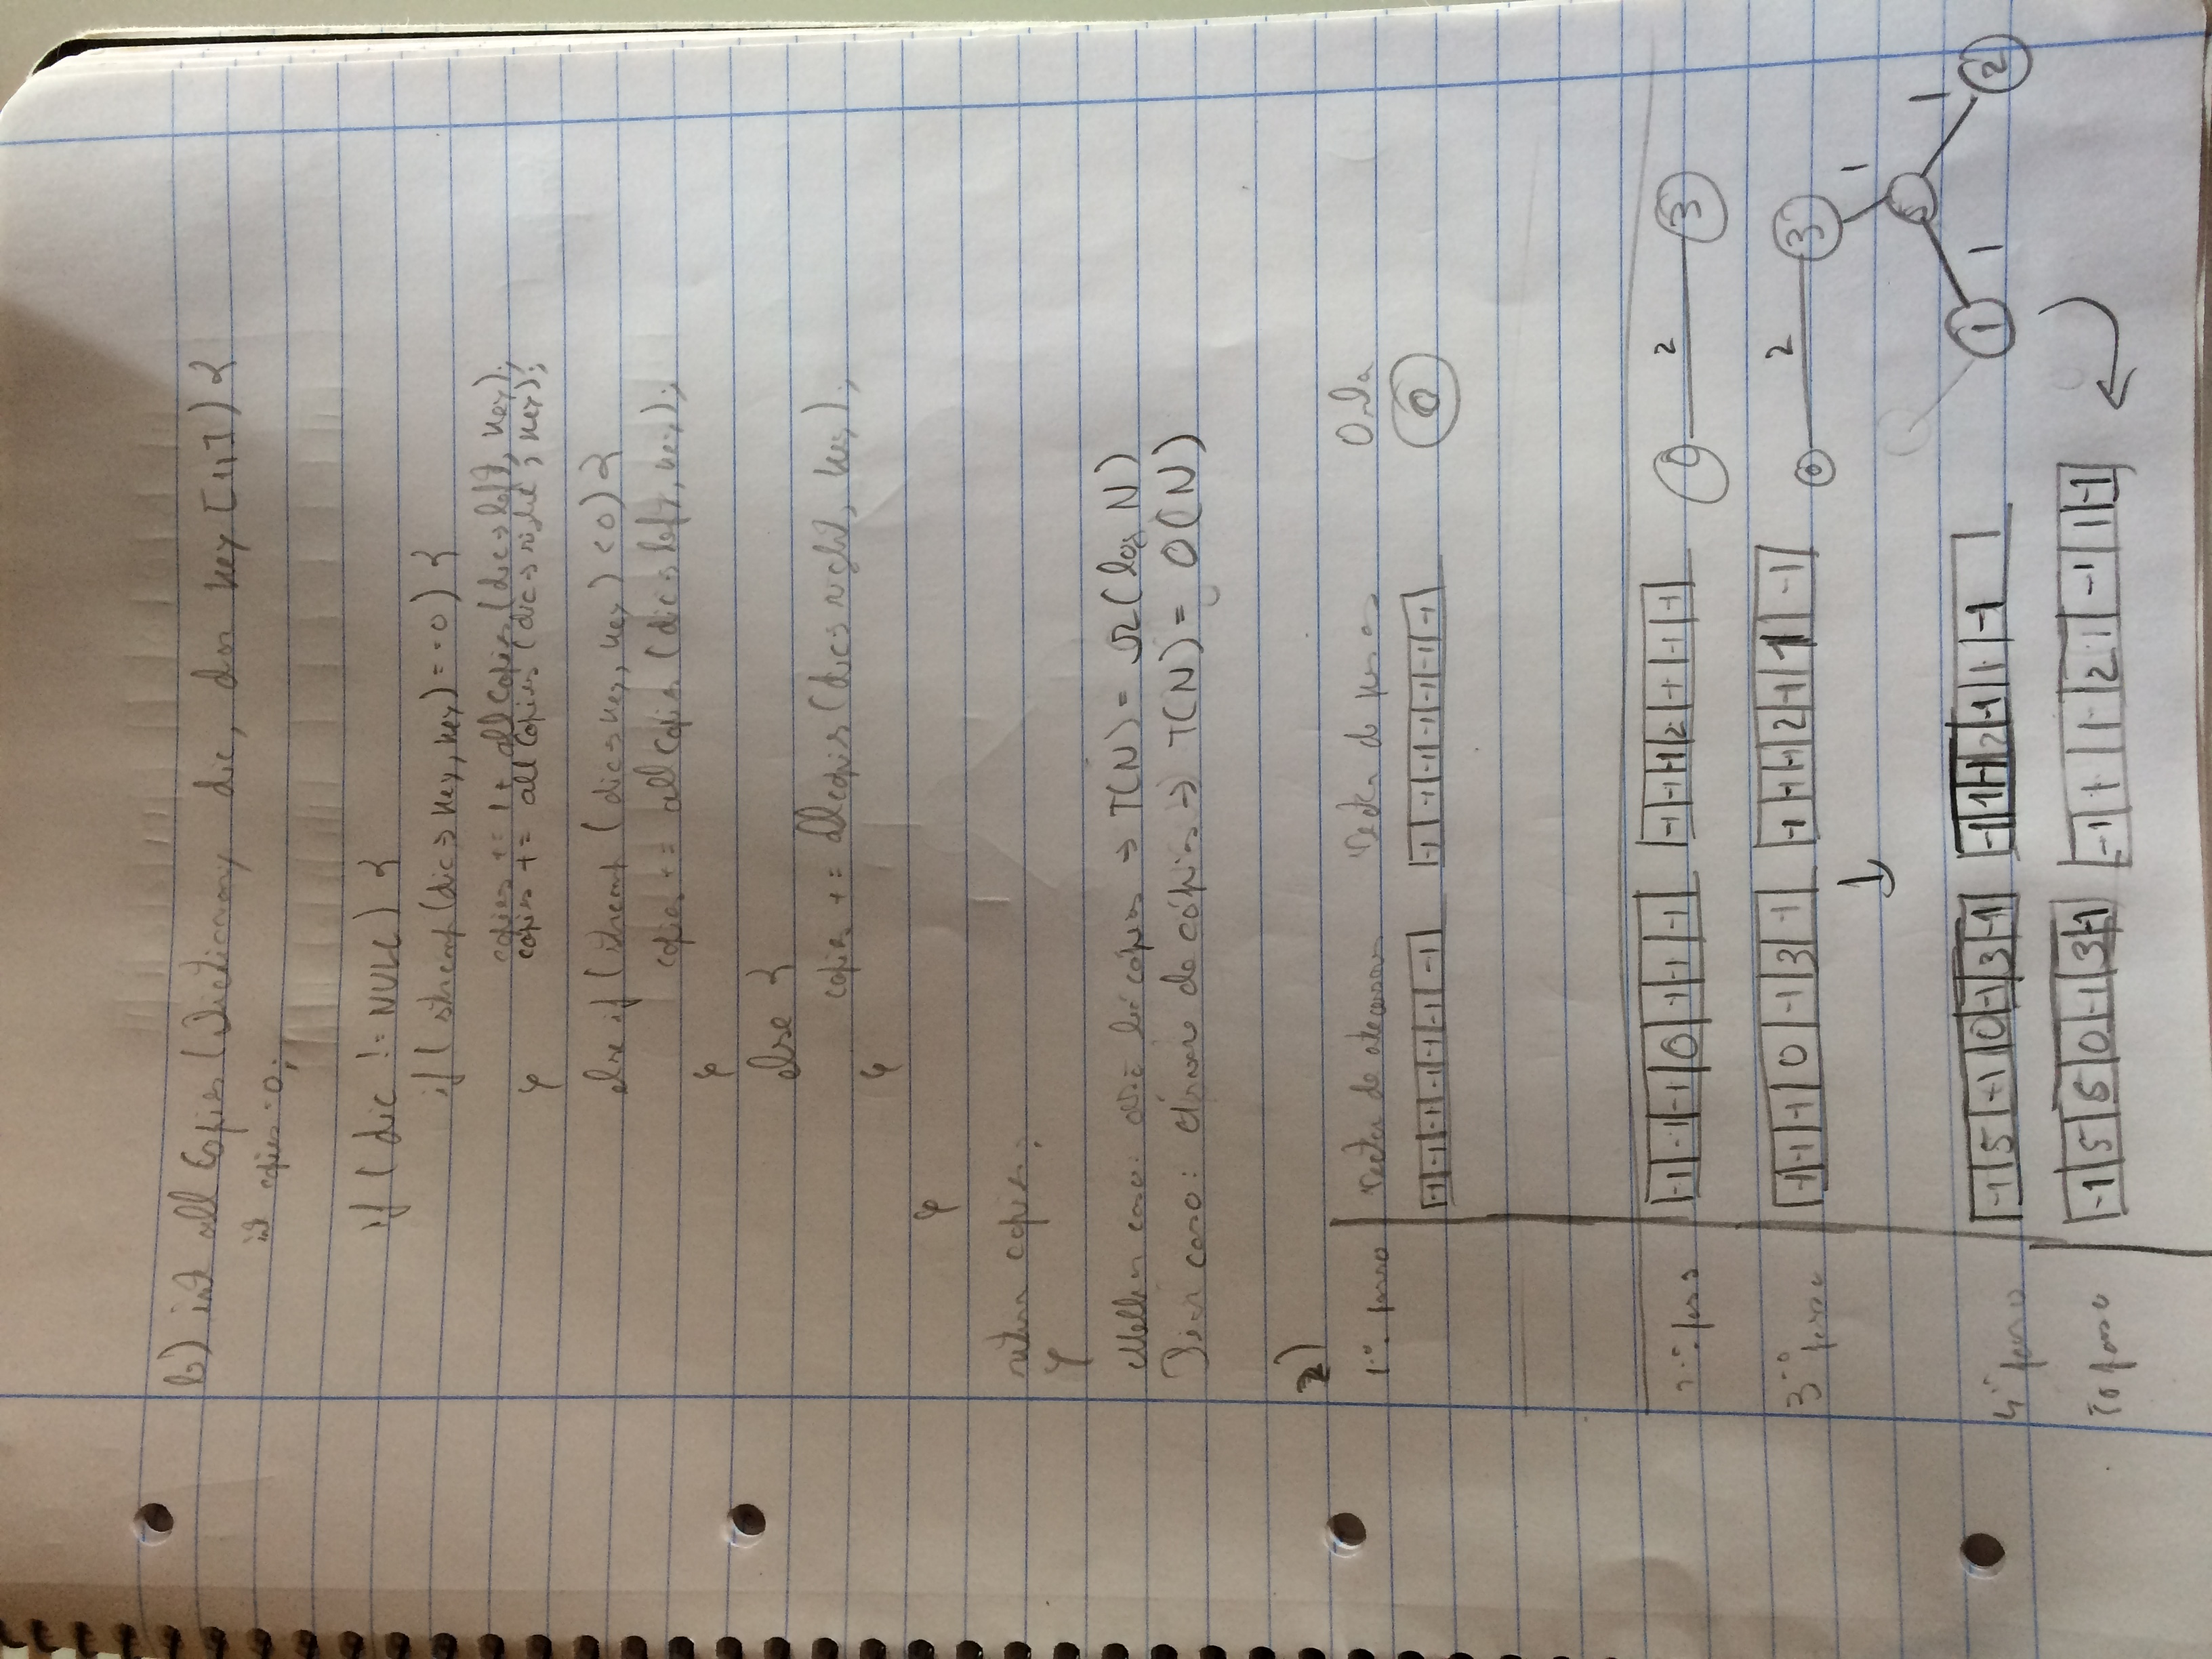 b) int allCopies (Dictionary dic, char key [11]) {
int copies = 0;
if (dic != NULL) {
if ( strcmp (dic->key, key) == 0) {
copies += 1 + allCopies (dic->left, key);
} copies += allCopies (dic->right, key);
else if (strcmp (dic->key, key) < 0) {
copies += allCopies (dic->left, key);
}
else {
copies += allcopies (dic->right, key);
}
}
return copies;
}
Melhor caso: não há cópias -> T(N) = Ω(log N)
Pior caso: árvore de cópias -> T(N) = O(N)
2)
1º passo vector de vector de pesos Orla
-1 -1 -1 -1 -1 -1 -1 -1 -1 -1 -1 -1 -1 -1 0
2º passo -1 -1 -1 0 -1 -1 -1 -1 -1 -1 2 -1 -1 -1 0 2 3
3º passo -1 -1 -1 0 -1 3 -1 -1 -1 -1 2 -1 1 -1 0 2 3
1
4º passo -1 5 -1 0 -1 3 -1 -1 1 -1 2 -1 1 -1 1 1 2
5º passo -1 5 5 0 -1 3 -1 -1 1 1 2 -1 1 -1